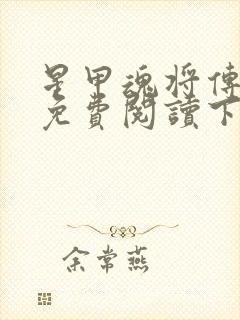 星甲魂将傳
免費閱讀下
余常燕